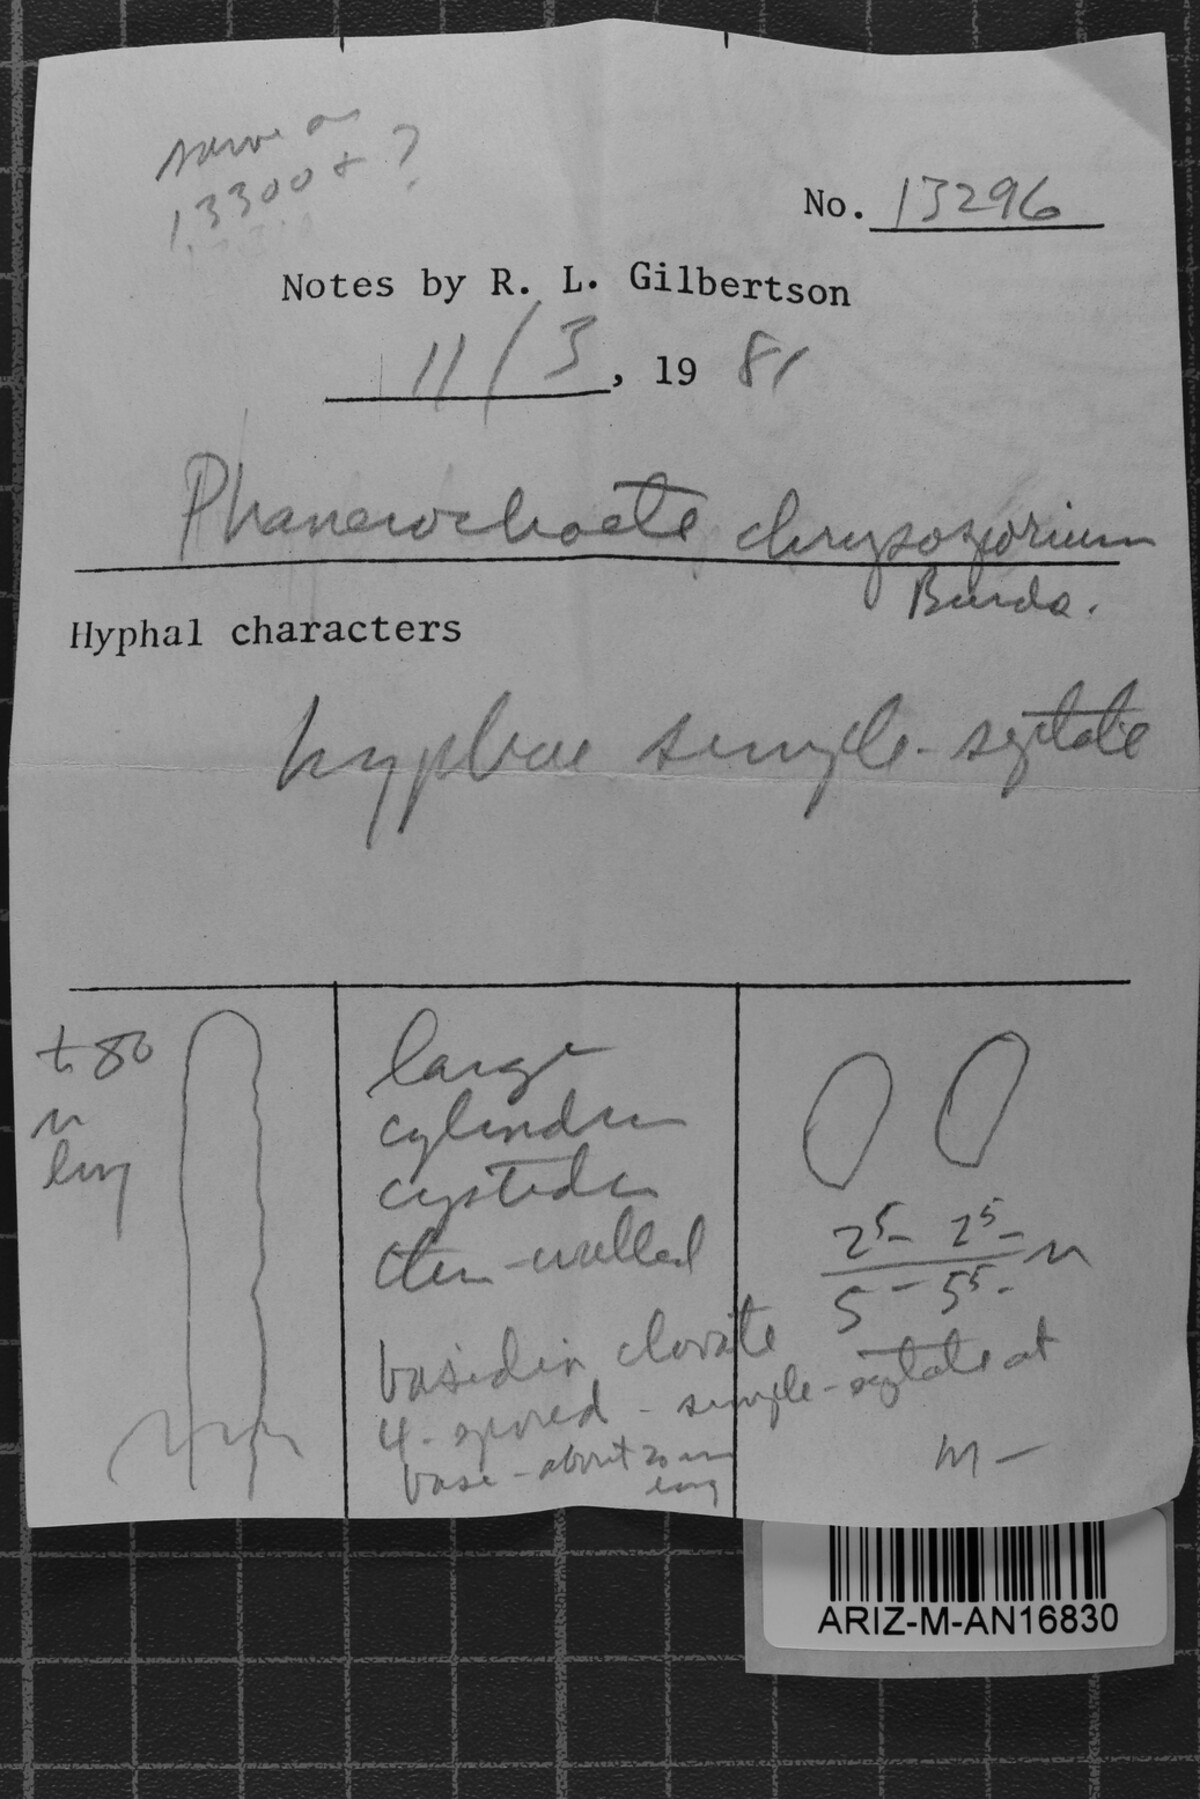 same as
13300 + ?
No. 13296
Notes by R. L. Gilbertson
11/3, 19 81
Phanerochaete chrysosporium
Burds.
Hyphal characters
hyphae simple-septate
t 80
μ
long
large
cylindric
cystidia
thin-walled
basidia clavate
4-spored - simple-septate at
base - about 20 μm
long
2⁵- 2⁵- μ
5 - 5⁵-
M -
ARIZ-M-AN16830